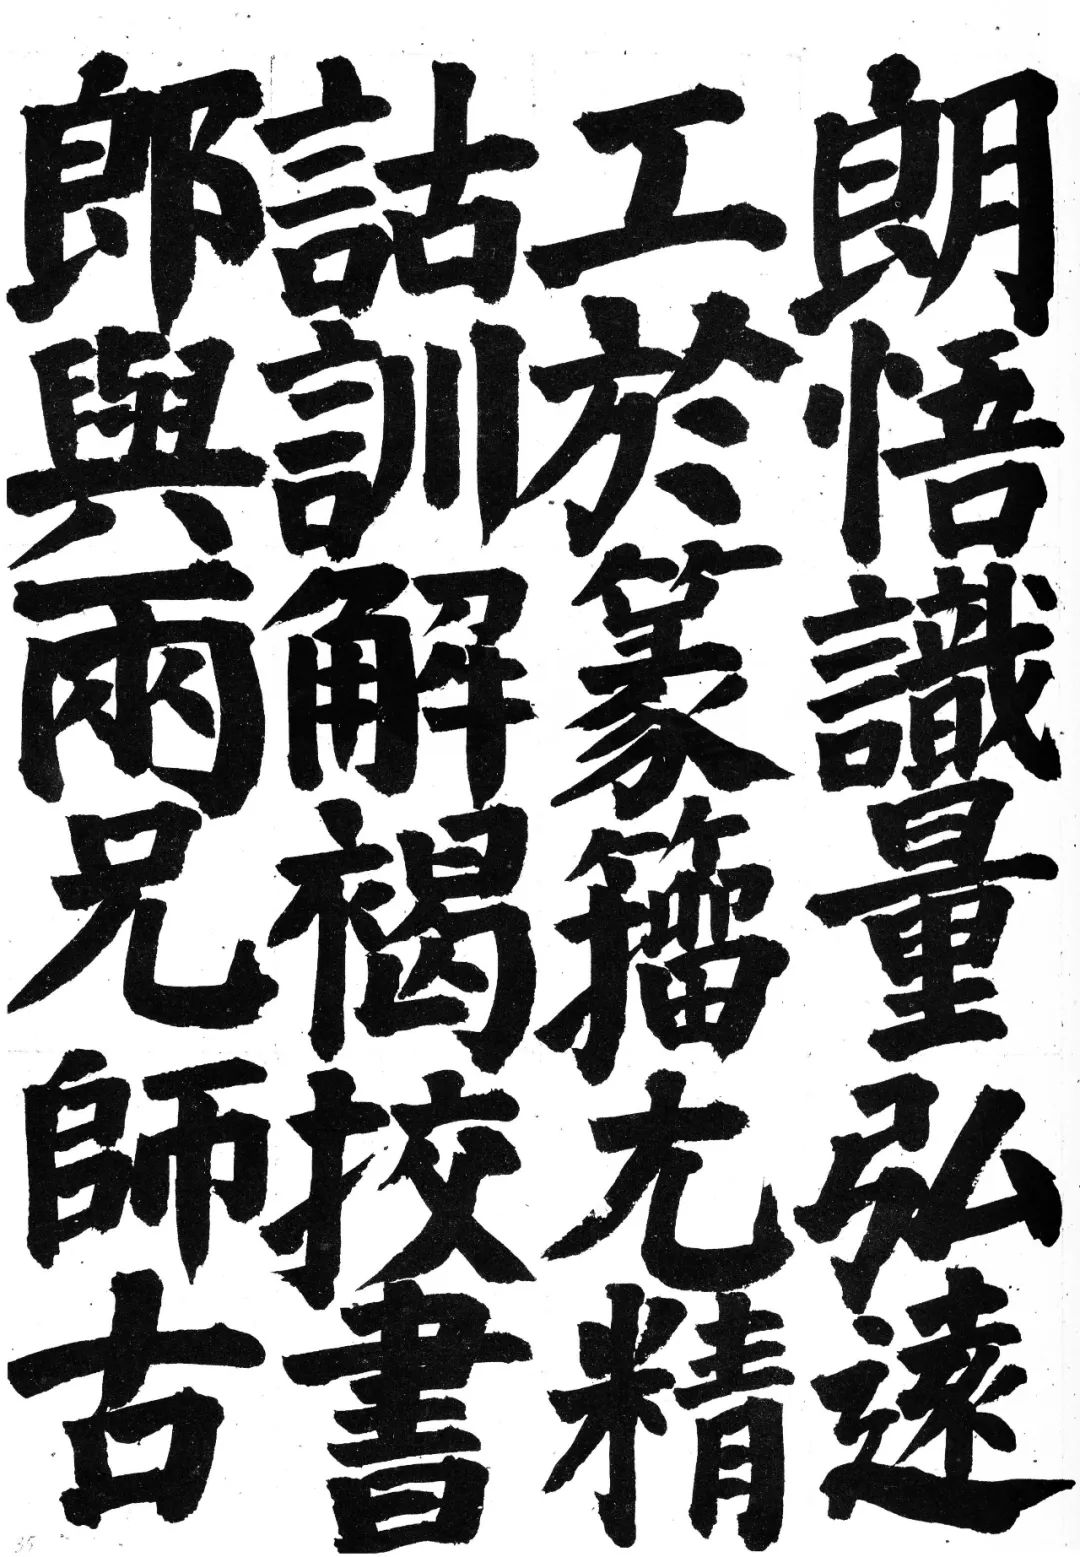 朗悟識量弘遠
工於篆籀尤精
詁訓解褐挍書
郎與兩兄師古
35